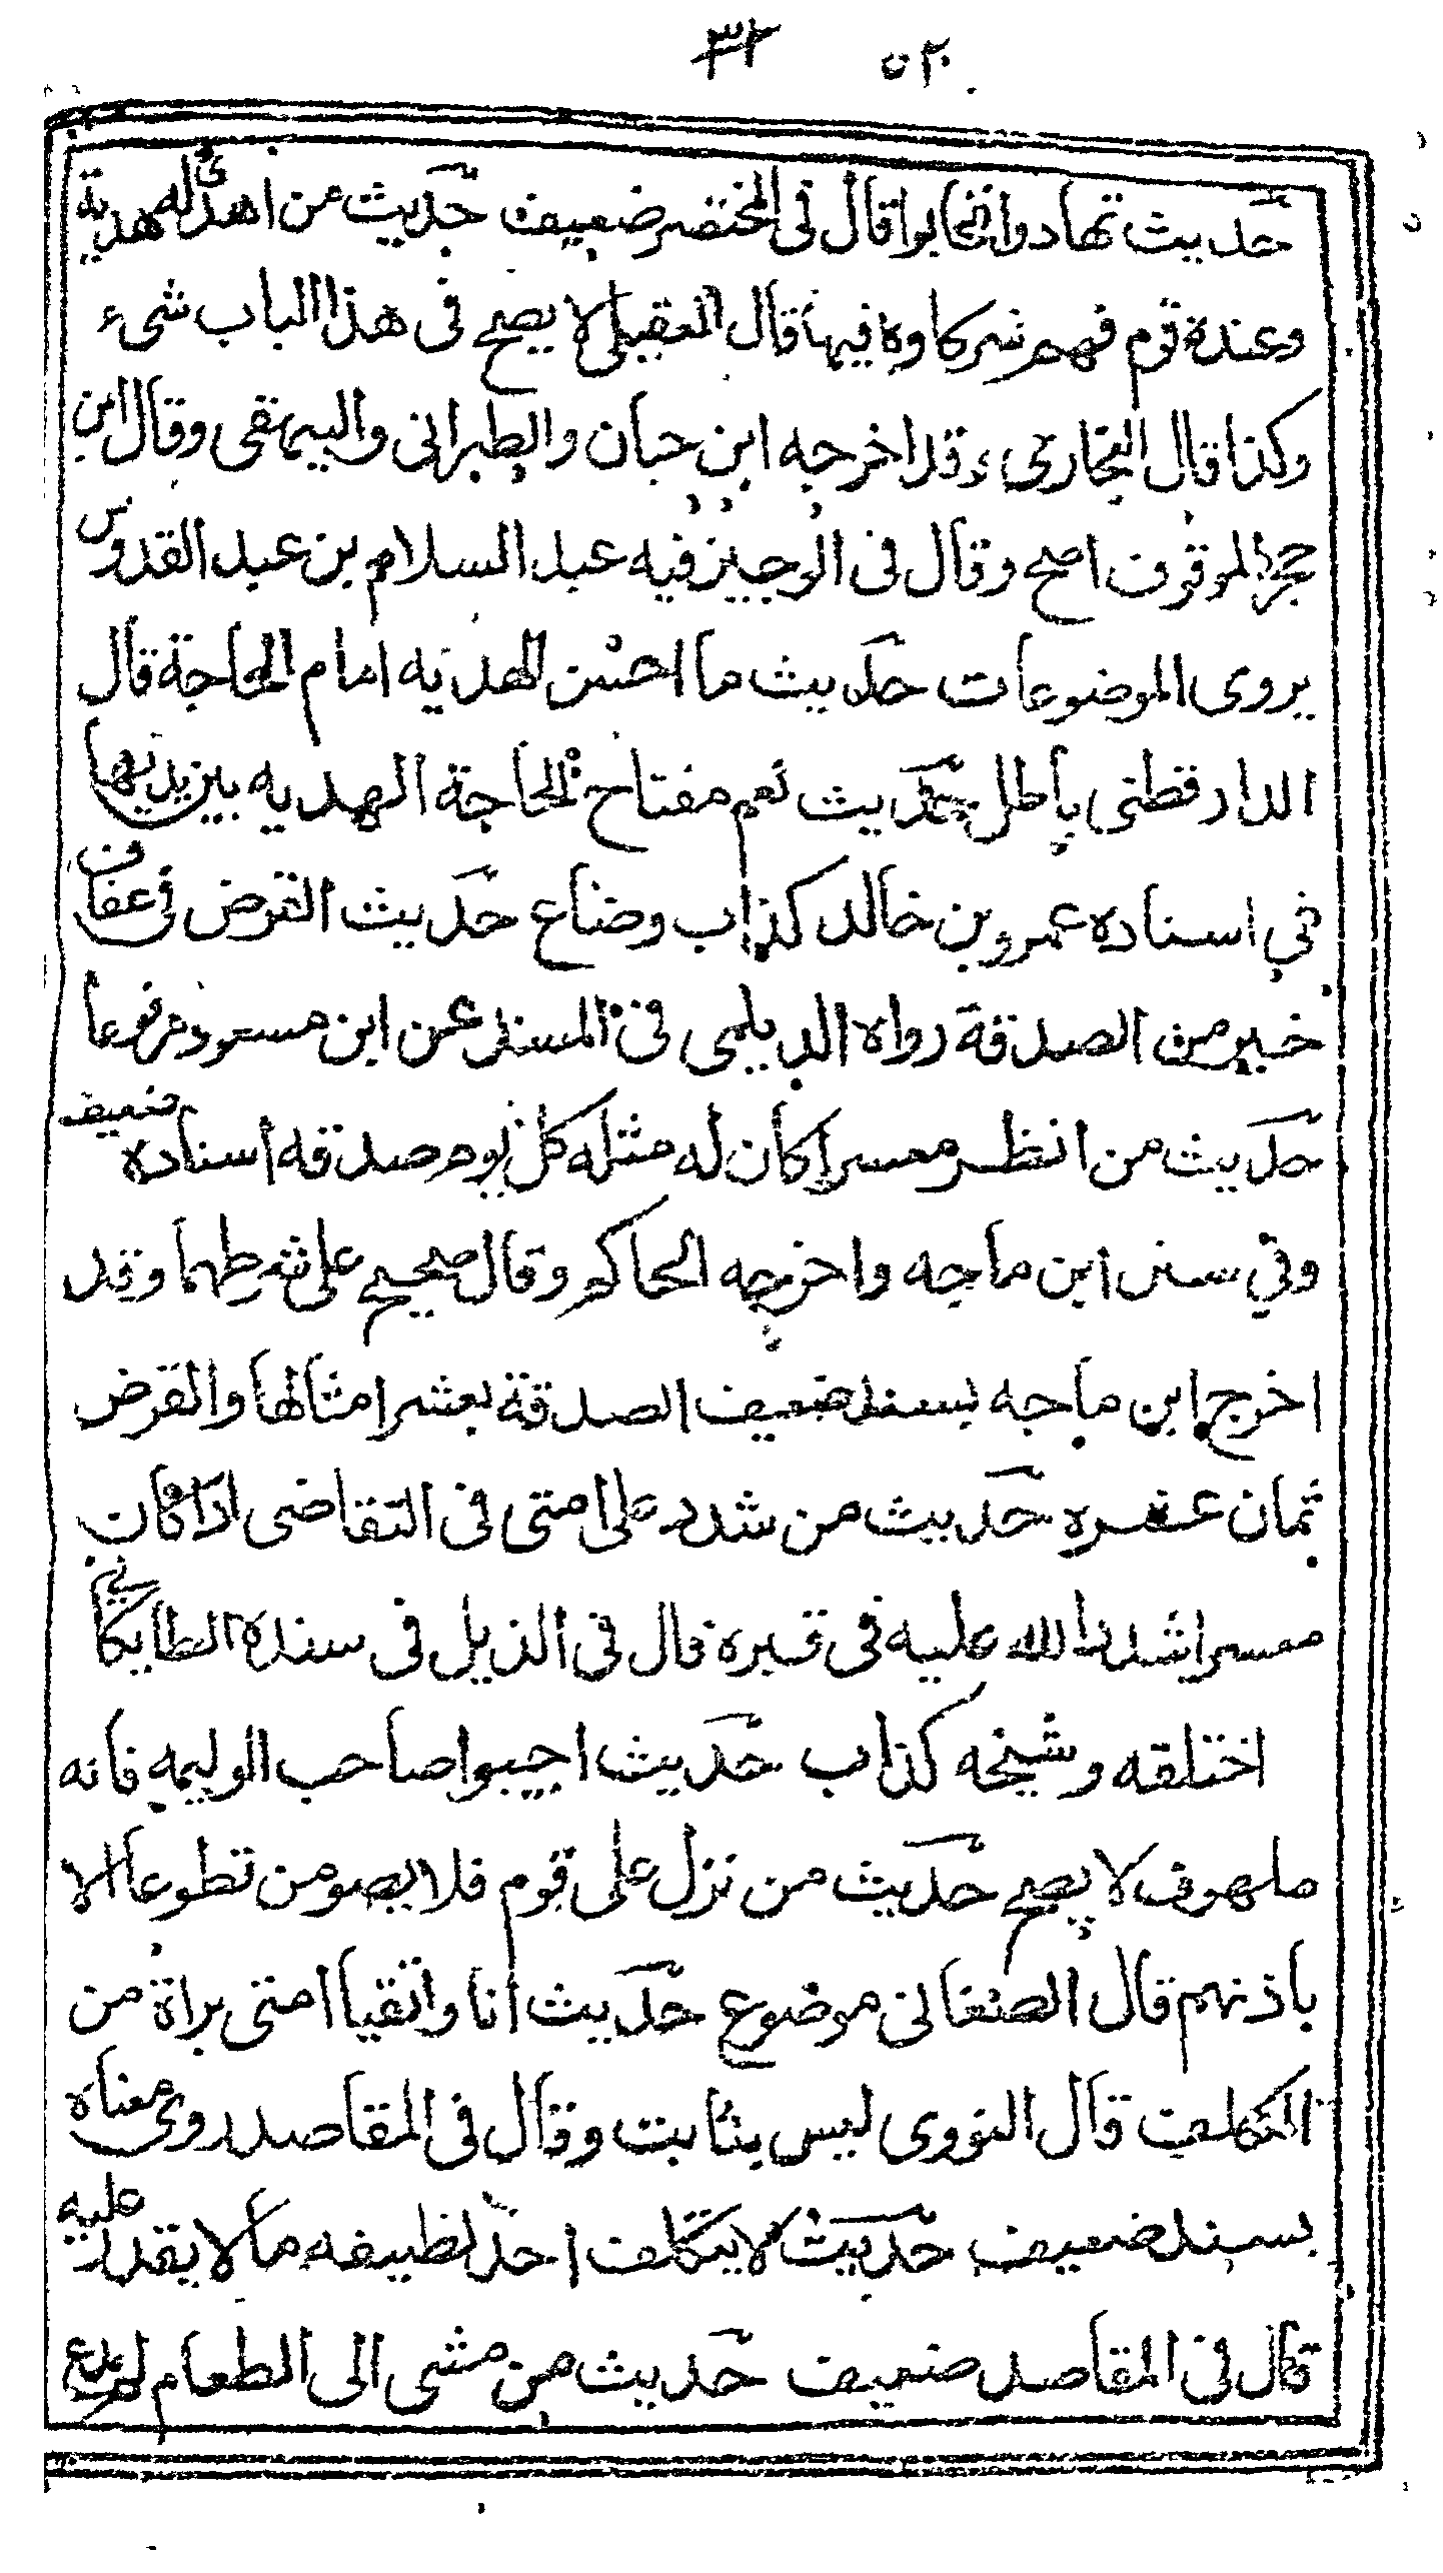 حديث تهادوا تحابوا قال فى المختصر ضعيف حديث من اهدئ له هدية
وعنده قوم فهم شركاوه فيها قال العقيلى لا يصح فى هذا الباب شىء
وكذا قال البخارى وقد اخرجه ابن حبان والطبرانى والبيهقى وقال ابن
حجر الموقوف اصح وقال فى الوجيز فيه عبد السلام بن عبد القدوس
يروى الموضوعات حديث ما احسن الهديه امام الحاجة قال
الدارقطنى باطل حديث نعم مفتاح الحاجة الهديه بين يديها
فى اسناده عمرو بن خالد كذاب وضاع حديث القرض فى عفاف
خير من الصدقة رواه الديلمى فى المسند عن ابن مسعود مرفوعا
حديث من انظر معسرا كان له مثله كل يوم صدقه اسناده ضعيف
وفي سنن ابن ماجه واخرجه الحاكم وقال صحيح على شرطهما وقد
اخرج ابن ماجه بسند ضعيف الصدقة بعشر امثالها والقرض
ثمان عشره حديث من شدد على امتى فى التقاضى اذا كان
معسرا شدد الله عليه فى قبره قال فى الذيل فى سنده الطايكانى
اختلقه وشيخه كذاب حديث اجيبوا صاحب الوليمه فانه
ملهوف لا يصح حديث من نزل على قوم فلا يصومن تطوعا الا
باذنهم قال الصنعانى موضوع حديث انا واتقيا امتى براة من
التكلف قال النووى ليس بثابت وقال فى المقاصد روى معناه
بسند ضعيف حديث لا يتكلف احد لظيفه ما لا يقدر عليه
قال فى المقاصد ضعيف حديث من مشى الى الطعام لم يدع